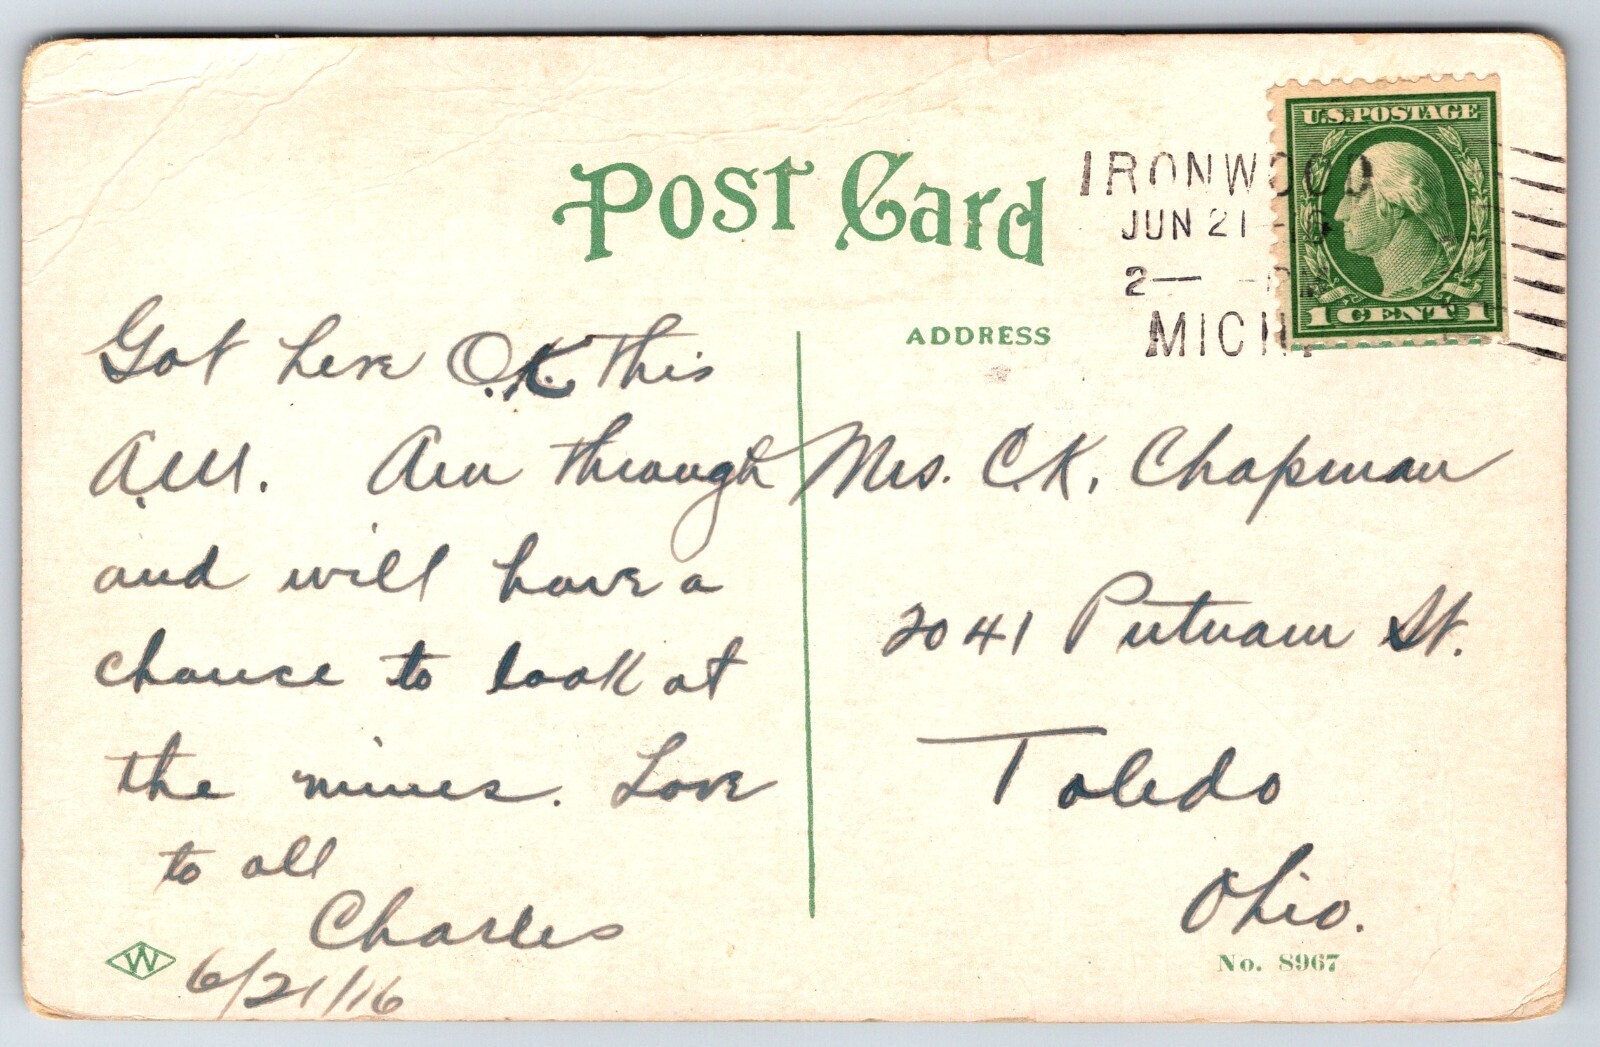 POST CARD
U.S. POSTAGE
1 CENT 1
IRONWOOD
JUN 21 -16
2 — -PM
MICH.
ADDRESS
Got here O.K. this
A.M. Am through
and will have a
chance to look at
the mines. Love
to all
Charles
6/21/16
Mrs. C.K. Chapman
2041 Putnam St.
Toledo
Ohio.
W
No. 8967